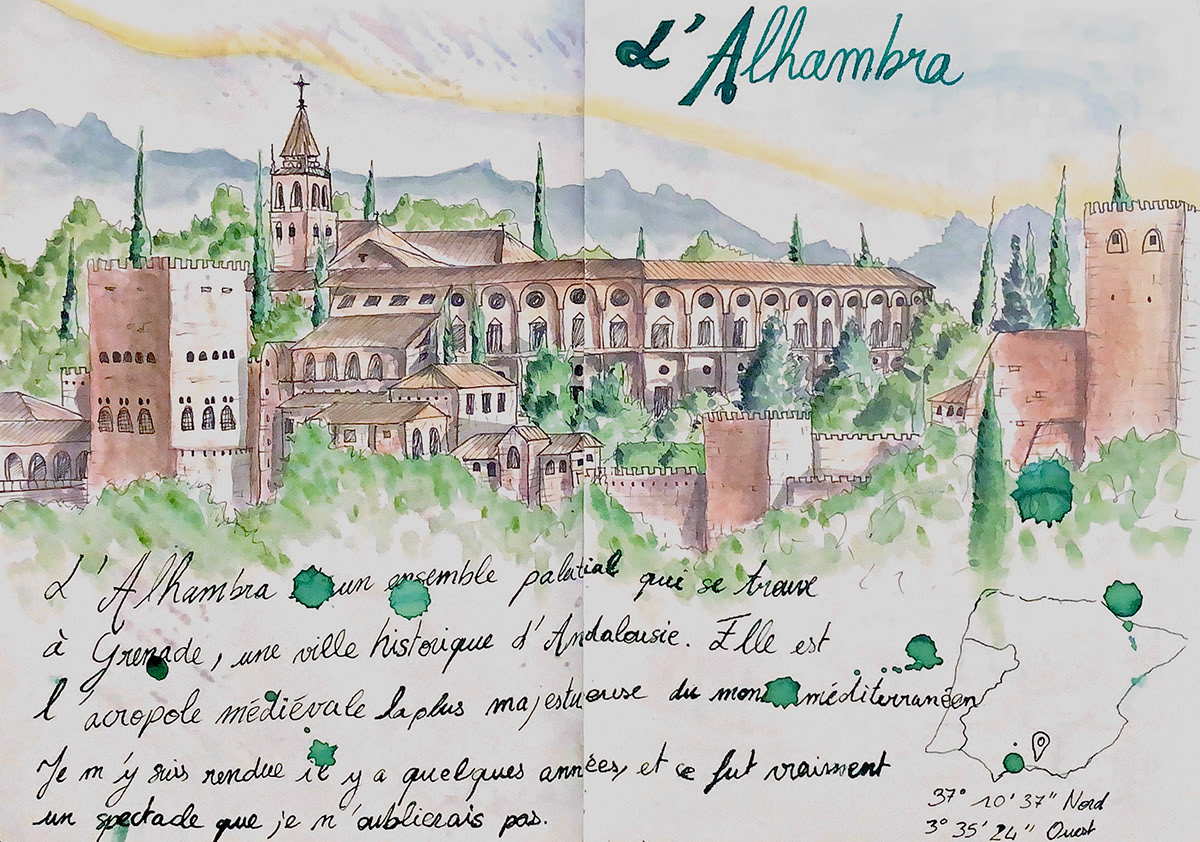 L'Alhambra
L'Alhambra un ensemble palatial qui se trouve
à Grenade, une ville historique d'Andalousie. Elle est
l'acropole médiévale la plus majestueuse du monde méditerranéen
Je m'y suis rendue il y a quelques années, et ce fut vraiment
un spectacle que je n'oublierais pas.
37° 10' 37" Nord
3° 35' 24" Ouest